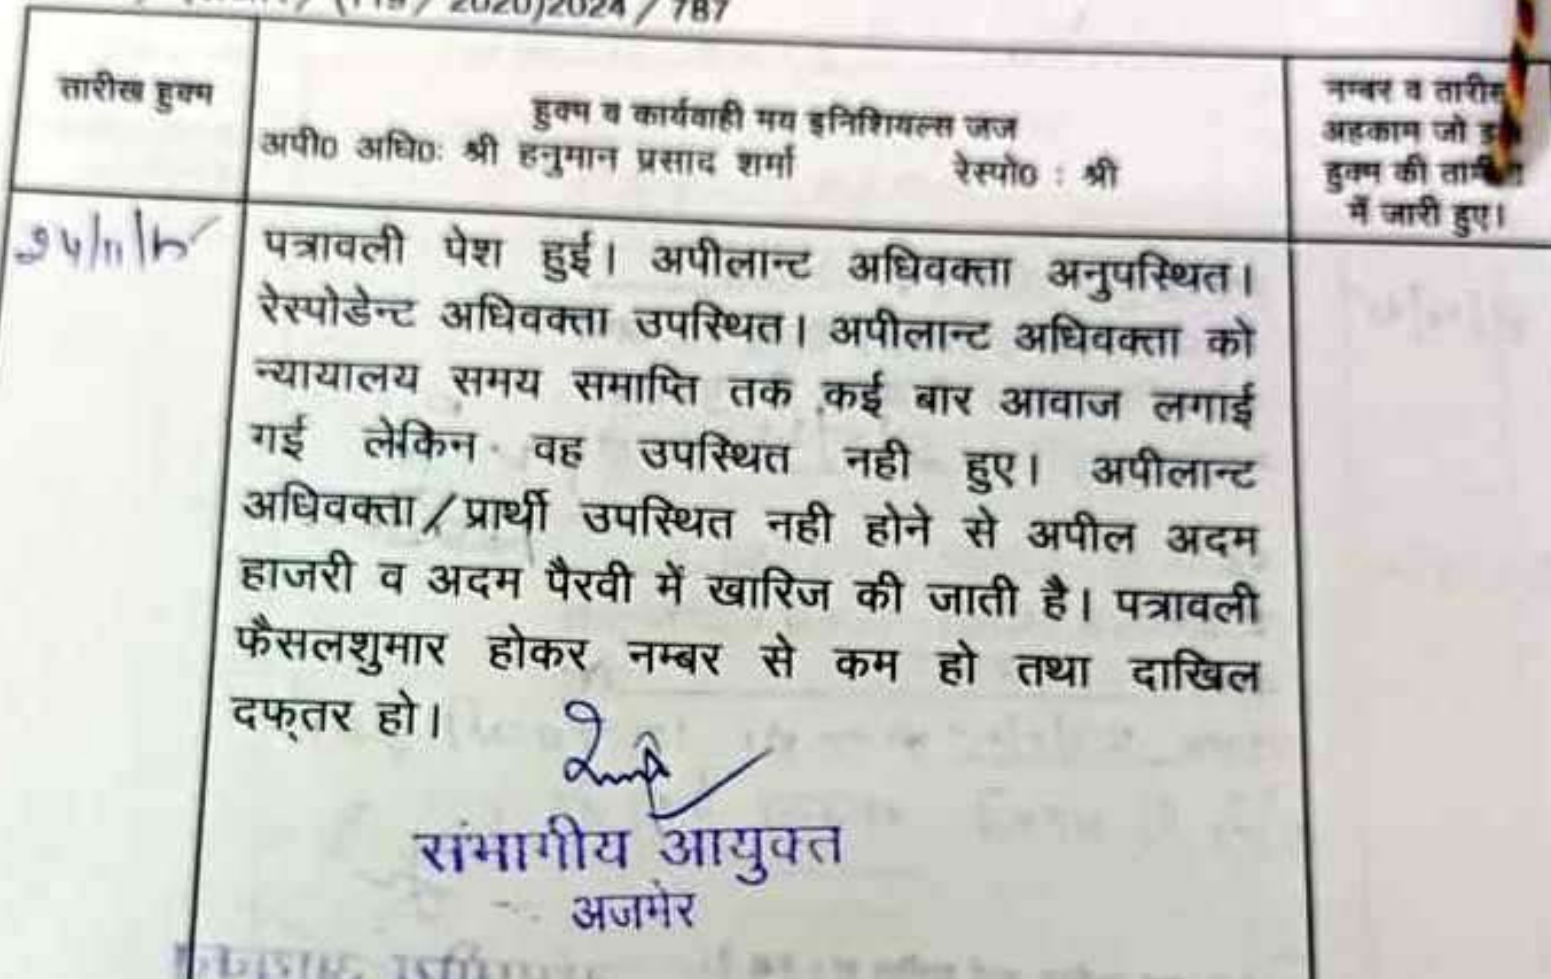 2020)2024 / 787
तारीख हुक्म
हुक्म व कार्यवाही मय इनिशियल्स जज
अपी0 अधि0: श्री हनुमान प्रसाद शर्मा रेस्पो0 : श्री
नम्बर व तारीख
अहकाम जो इस
हुक्म की तामील
में जारी हुए।
पत्रावली पेश हुई। अपीलान्ट अधिवक्ता अनुपस्थित।
रेस्पोडेन्ट अधिवक्ता उपस्थित। अपीलान्ट अधिवक्ता को
न्यायालय समय समाप्ति तक कई बार आवाज लगाई
गई लेकिन वह उपस्थित नही हुए। अपीलान्ट
अधिवक्ता/प्रार्थी उपस्थित नही होने से अपील अदम
हाजरी व अदम पैरवी में खारिज की जाती है। पत्रावली
फैसलशुमार होकर नम्बर से कम हो तथा दाखिल
दफ्तर हो।
संभागीय आयुक्त
अजमेर